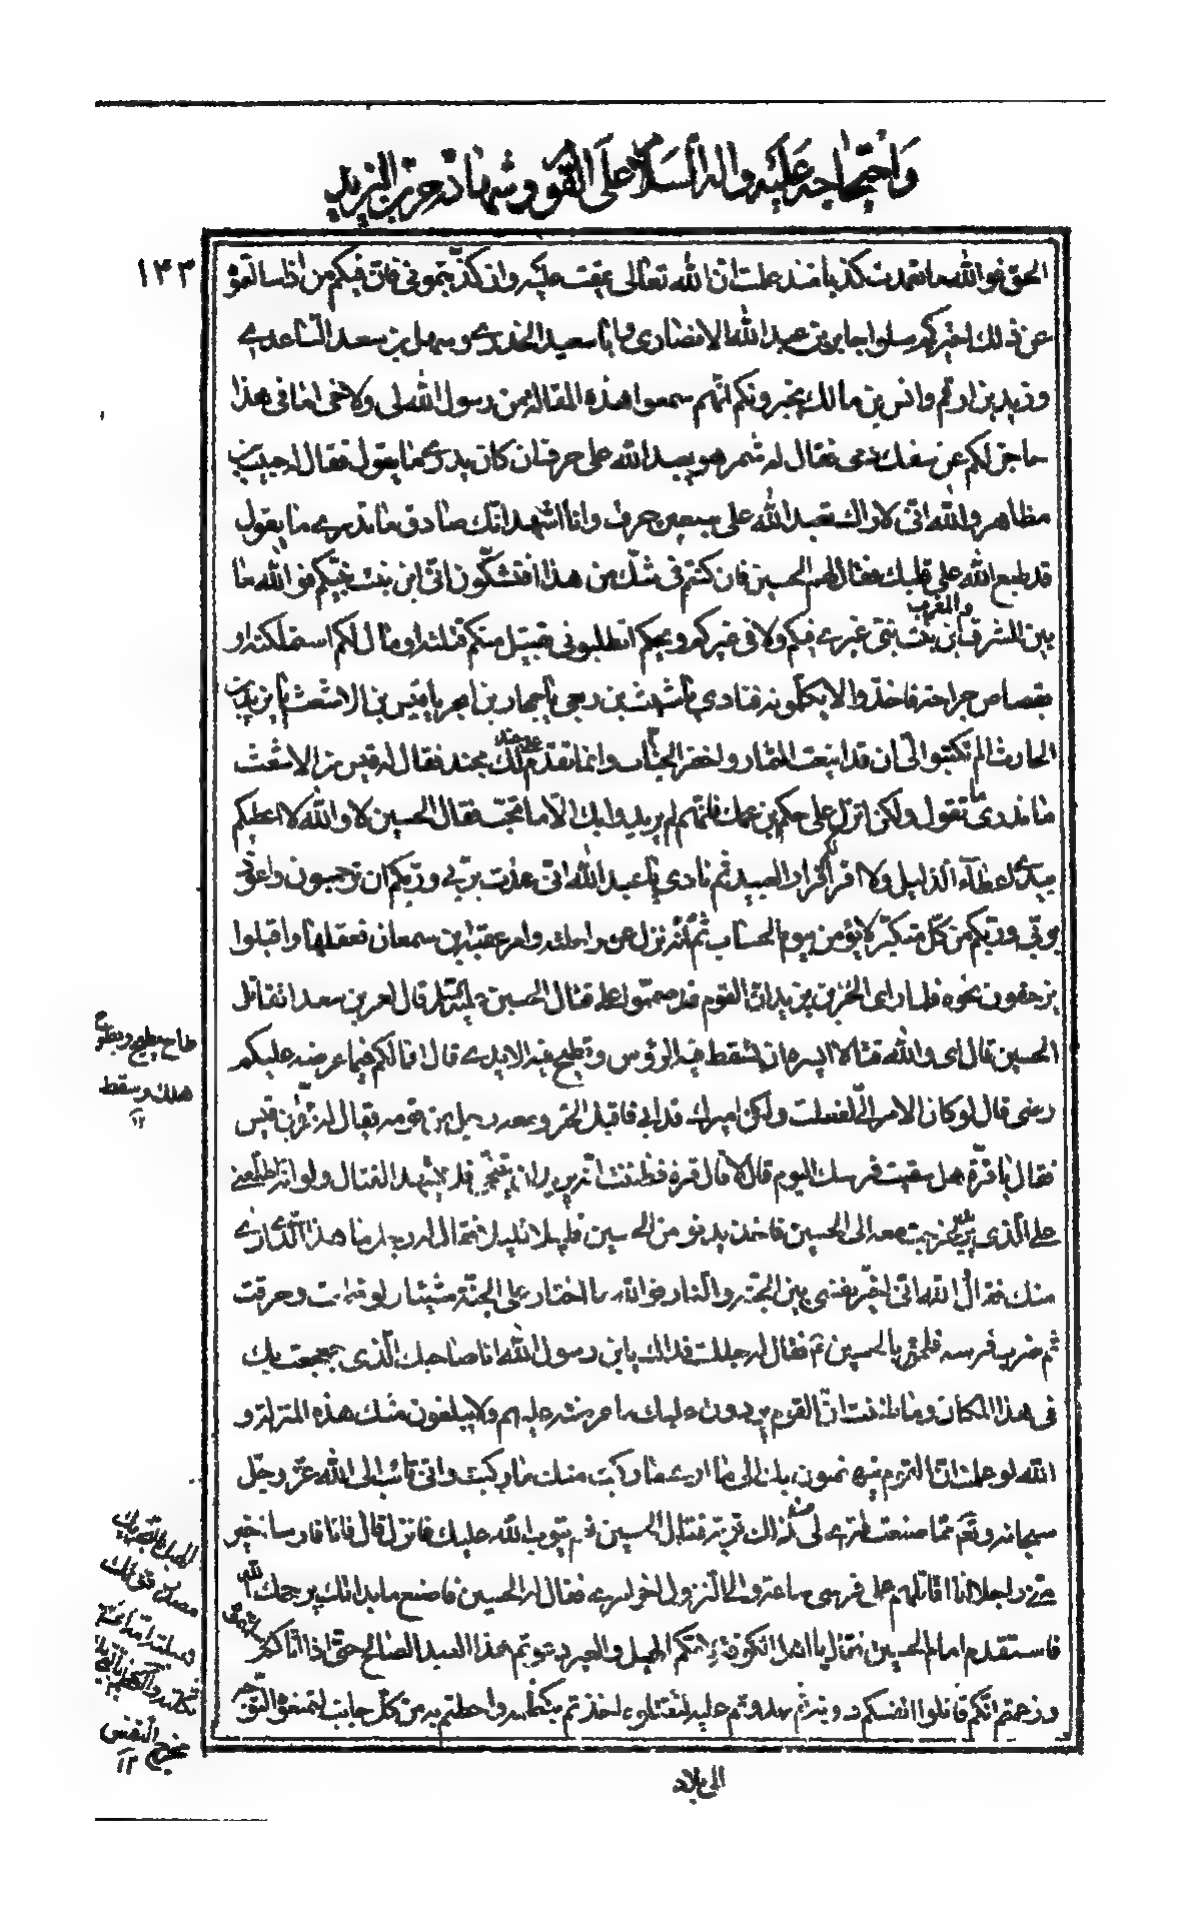 واحتجاجه عليه واله السلام على القوم وشهادة حر بن اليزيد
١٤٣
الحق فوالله ما تعمدت كذبا منذ علمت ان الله تعالى يمقت عليه وان كذبتموني فان فيكم من اذا سالتموه
عن ذلك اخبركم سلوا جابر بن عبد الله الانصارى وابا سعيد الخدري وسهل بن سعد الساعدي
وزيد بن ارقم وانس بن مالك يخبرونكم انهم سمعوا هذه المقالة من رسول الله لى ولاخى اما فى هذا
حاجز لكم عن سفك دمى فقال له شمر هو يعبد الله على حرف ان كان يدري ما يقول فقال له حبيب بن
مظاهر والله انى لاراك تعبد الله على سبعين حرفا وانا اشهد انك صادق ما تدري ما يقول
قد طبع الله على قلبك فقال لهم الحسين فان كنتم فى شك من هذا افتشكون انى ابن بنت نبيكم فوالله ما
بين المشرق والمغرب ابن بنت نبى غيري فيكم ولا فى غيركم ويحكم اتطلبونى بقتيل منكم قتلته او مال لكم استهلكته او
بقصاص جراحة فاخذوا لا يكلمونه فنادى يا شبث بن ربعى يا حجار بن ابجر يا قيس بن الاشعث يا يزيد بن
الحارث الم تكتبوا الى ان قد اينعت الثمار واخضر الجناب وانما تقدم على جند لك مجند فقال له قيس بن الاشعث
ما ندرى ما تقول ولكن انزل على حكم بنى عمك فانهم لم يريدوا بك الا ما تحب فقال الحسين لا والله لا اعطيكم
بيدي اعطاء الذليل ولا اقر لكم اقرار العبيد ثم نادى يا عباد الله انى عذت بربي وربكم ان ترجمون واعوذ
بربى وربكم من كل متكبر لا يؤمن بيوم الحساب ثم انه نزل عن راحلته وامر عقبة بن سمعان فعقلها واقبلوا
يزحفون نحوه فلما راى الحر بن يزيد ان القوم قد صمموا على قتال الحسين عليه السلام قال لعمر بن سعد اتقاتل
الحسين قال اى والله قتالا ايسره ان تسقط فيه الرؤس وتطيح فيه الايدي قال افما لكم فيما عرضه عليكم
رضى قال لو كان الامر الى لفعلت ولكن اميرك قد ابى فاقبل الحر ومعه رجل من قومه يقال له قرة بن قيس
فقال يا قرة هل سقيت فرسك اليوم قال لا قال قرة فظننت انه يريد ان يتنحى فلا يشهد القتال ولو انه اطلعنى
على الذى يريد لخرجت معه الى الحسين فاخذ يدنو من الحسين قليلا قليلا فقال له رجل ما هذا الذى ارى
منك فقال والله انى اخير نفسى بين الجنة والنار فوالله ما اختار على الجنة شيئا ولو قطعت وحرقت
ثم ضرب فرسه فلحق بالحسين ثم فقال له جعلت فداك يا بن رسول الله انا صاحبك الذى جعجعت بك
فى هذا المكان وما ظننت ان القوم يردون عليك ما عرضته عليهم ولا يبلغون منك هذه المنزلة و
الله لو علمت ان القوم ينتهون بك الى ما ارى ما ركبت منك ما ركبت وانى تائب الى الله عز وجل
مما صنعت فترى لى من ذلك توبة فقال الحسين نعم يتوب الله عليك فانزل قال فانا فارسا خير
منى راجلا انا اقاتلهم على فرسى ساعة والى النزول اخر امري فقال له الحسين فاصنع ما بدا لك يرحمك الله
فاستقدم امام الحسين فقال يا اهل الكوفة لامكم الهبل والعبر دعوتم هذا العبد الصالح حتى اذا اتاكم
وزعمتم انكم قاتلوا انفسكم دونه ثم عدوتم عليه لتقتلوه اخذتم بكظمه واحطتم به من كل جانب لتمنعوه التوجه
الى بلاد
طاح يطيح ويطوح
هلك وسقط
١٢
مخرج النفس
١٢